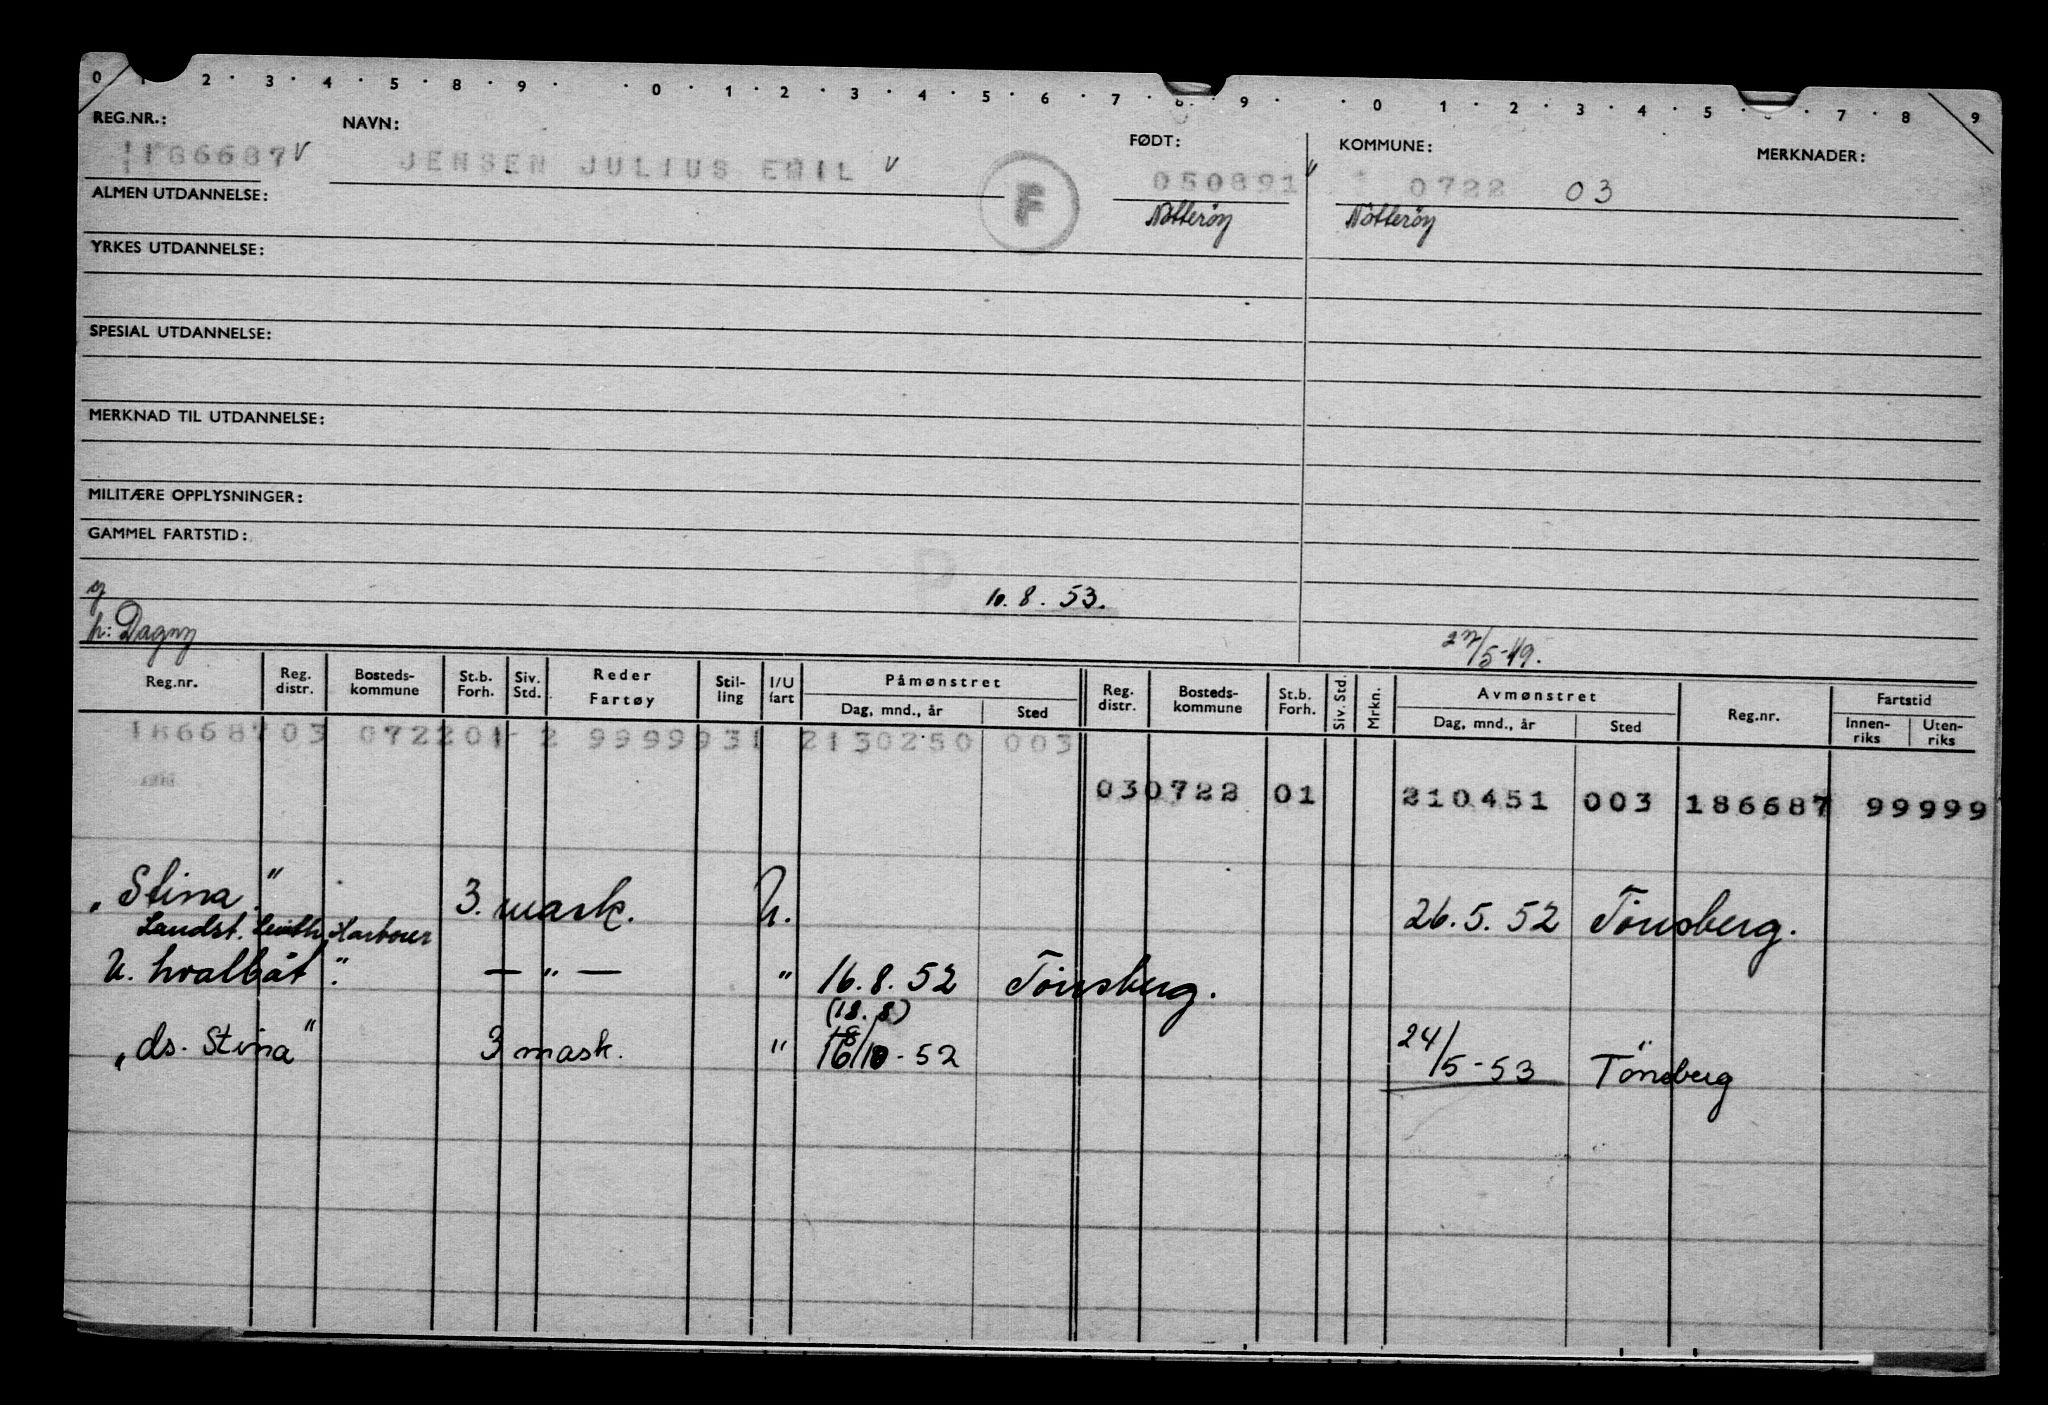 0 1 2 · 3 · 4 · 5 · 8 · 9 · · 0 · 1 · 2 · 3 · 4 · 5 · 6 · 7 · 8 · 9 · · 0 · 1 · 2 · 3 · 4 · 5 · · 7 · 8 · 9
REG.NR.: NAVN: FØDT: KOMMUNE: MERKNADER:
186687 V JENSEN JULIUS EMIL V F 050891 V 0722 03
ALMEN UTDANNELSE: Nötteröy Nötteröy
YRKES UTDANNELSE:
SPESIAL UTDANNELSE:
MERKNAD TIL UTDANNELSE:
MILITÆRE OPPLYSNINGER:
GAMMEL FARTSTID:
P
g 10. 8. 53.
h: Dagny 27/5-49.
Reg.nr. Reg. distr. Bosteds-kommune St.b. Forh. Siv. Std. Reder Fartøy Stil-ling I/U fart Påmønstret Dag, mnd., år Sted Reg. distr. Bosteds-kommune St.b. Forh. Siv. Std. Mrkn. Avmønstret Dag, mnd., år Sted Reg.nr. Fartstid Innen-riks Uten-riks
186687 03 0722 01 - 2 9999931 2130250 003
030722 01 210451 003 186687 99999
„Stina" 3. mask. U. 26.5.52 Tönsberg.
Landst. Leith Harbour
U. hvalbåt " — " — " 16.8.52 Tönsberg.
(18.8)
„ds. Stina" 3 mask. " 16/10-52 24/5-53 Tönsberg